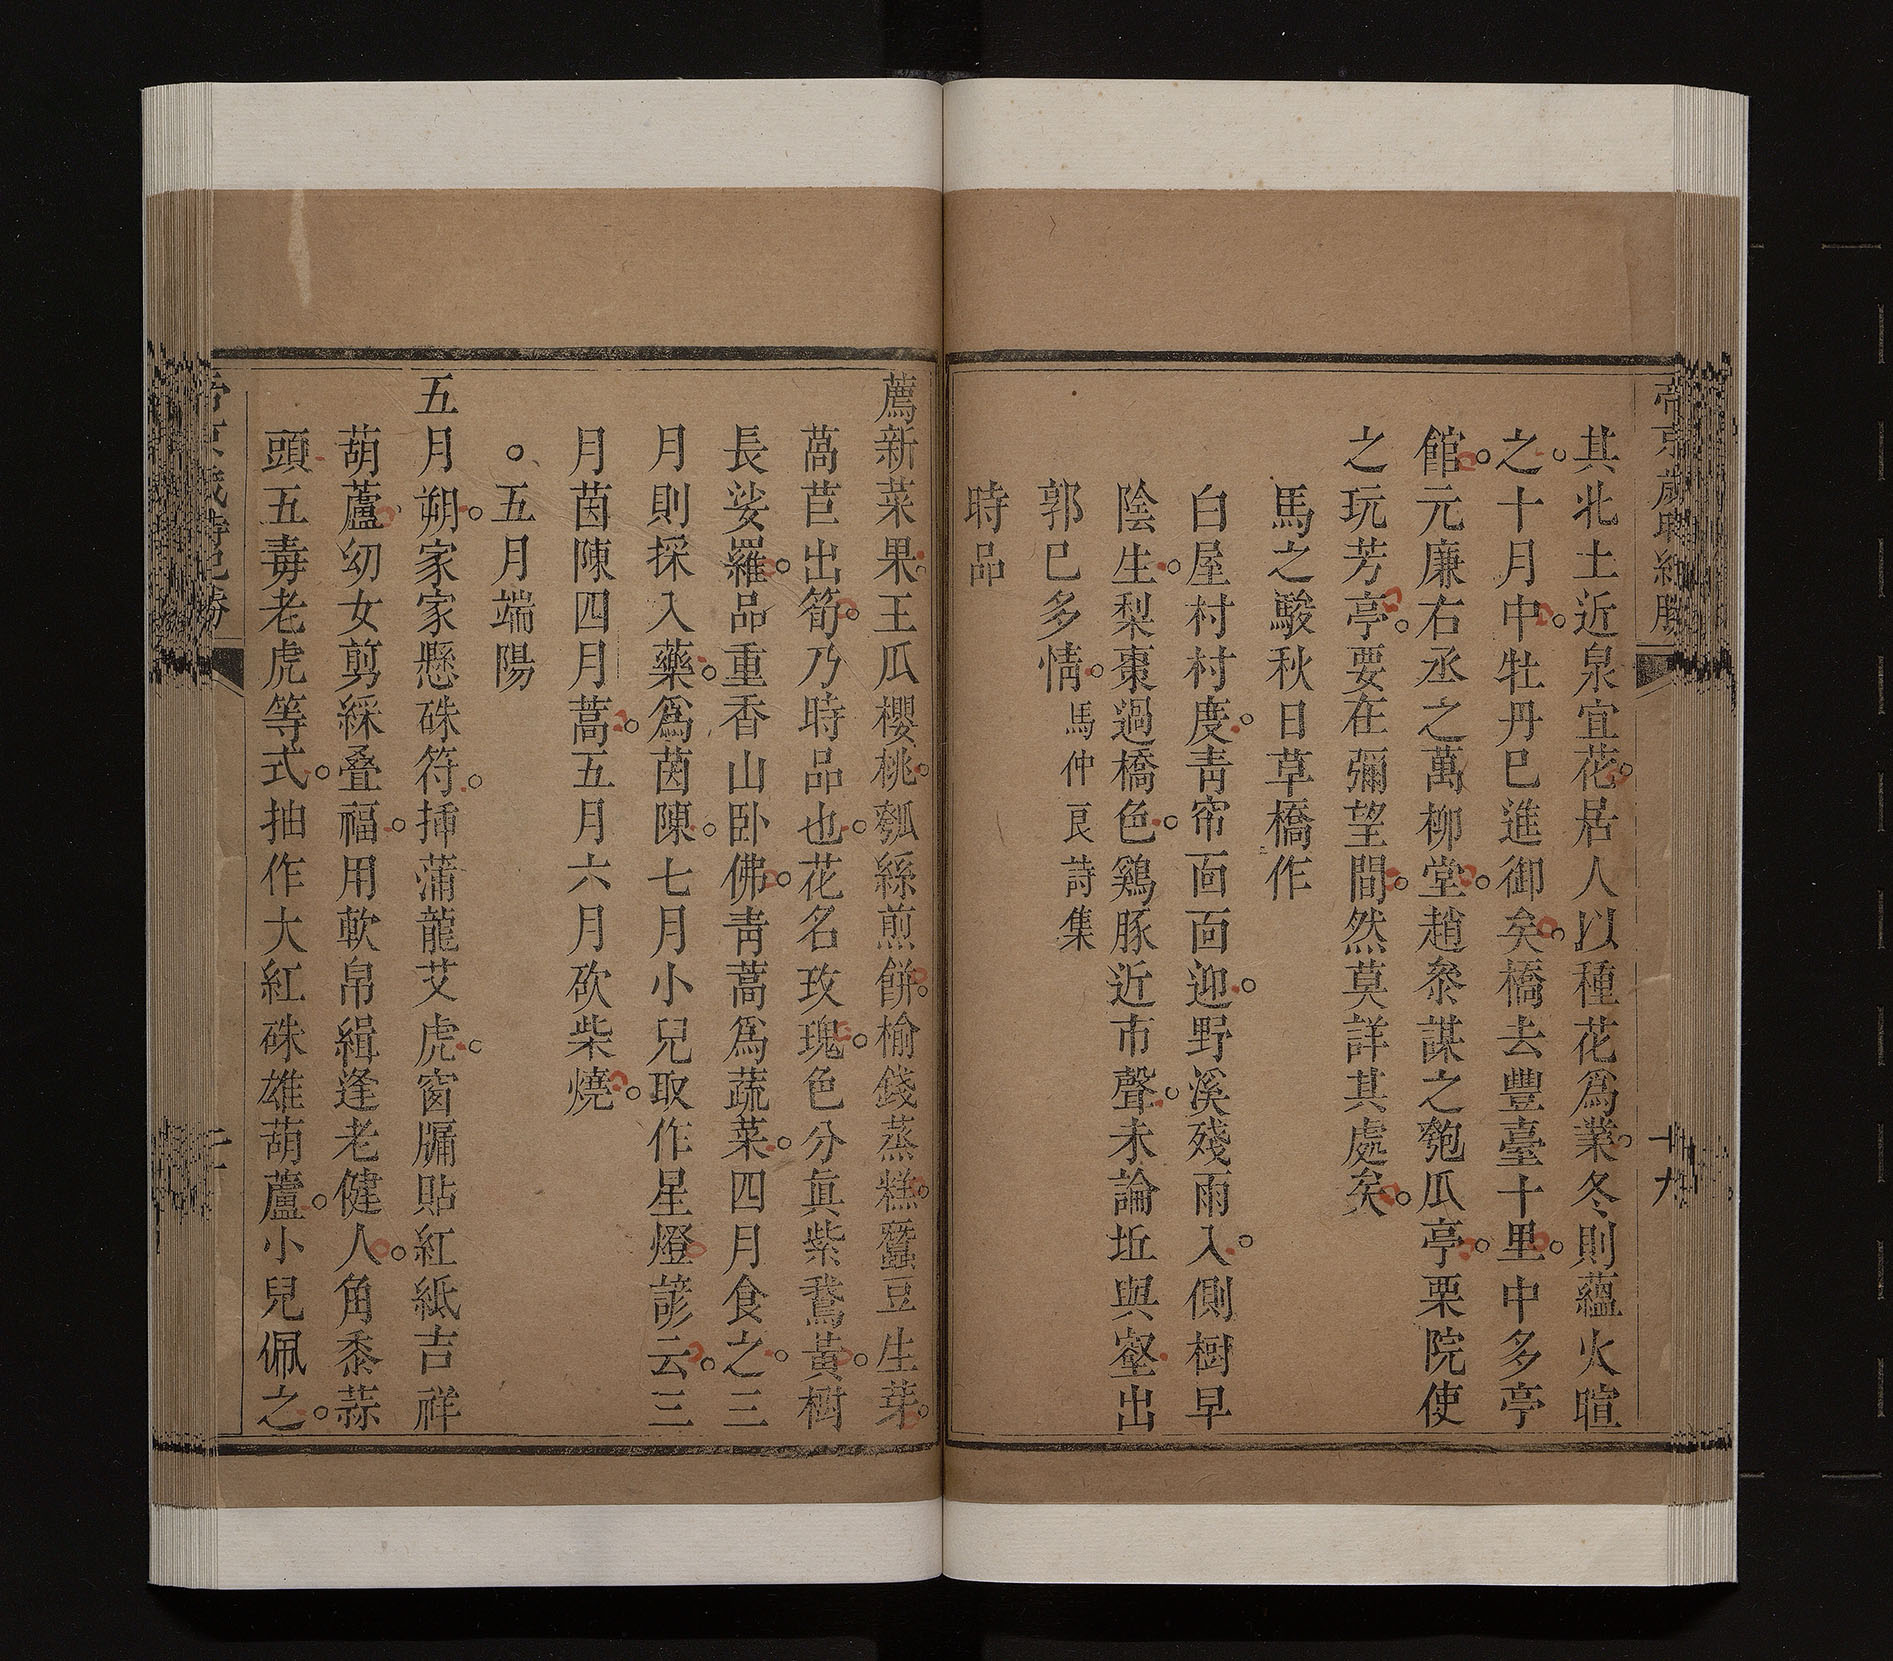 帝京歲時紀勝
十九
其北土近泉宜花。居人以種花爲業。冬則蘊火暄
之。十月中。牡丹已進御矣。橋去豐臺十里。中多亭
館。元廉右丞之萬柳堂。趙叅謀之匏瓜亭。栗院使
之玩芳亭。要在彌望間。然莫詳其處矣。
馬之駿秋日草橋作
白屋村村度。靑帘面面迎。野溪殘雨入。側樹早
陰生。梨棗過橋色。鷄豚近市聲。未論坵與壑出
郭已多情。馬仲良詩集
時品
薦新菜果王瓜櫻桃。瓠絲煎餅。榆錢蒸糕。蠶豆生芽。
萵苣出筍。乃時品也。花名玫瑰。色分眞紫鵞黃。樹
長娑羅。品重香山卧佛。靑蒿爲蔬菜。四月食之。三
月則採入藥。爲茵陳。七月小兒取作星燈諺云。三
月茵陳四月蒿。五月六月砍柴燒。
○五月端陽
五月朔。家家懸硃符。揷蒲龍艾虎。窗牖貼紅紙吉祥
葫蘆幼女剪綵疊福。用軟帛緝逢老健人。角黍蒜
頭五毒老虎等式。抽作大紅硃雄葫蘆。小兒佩之。